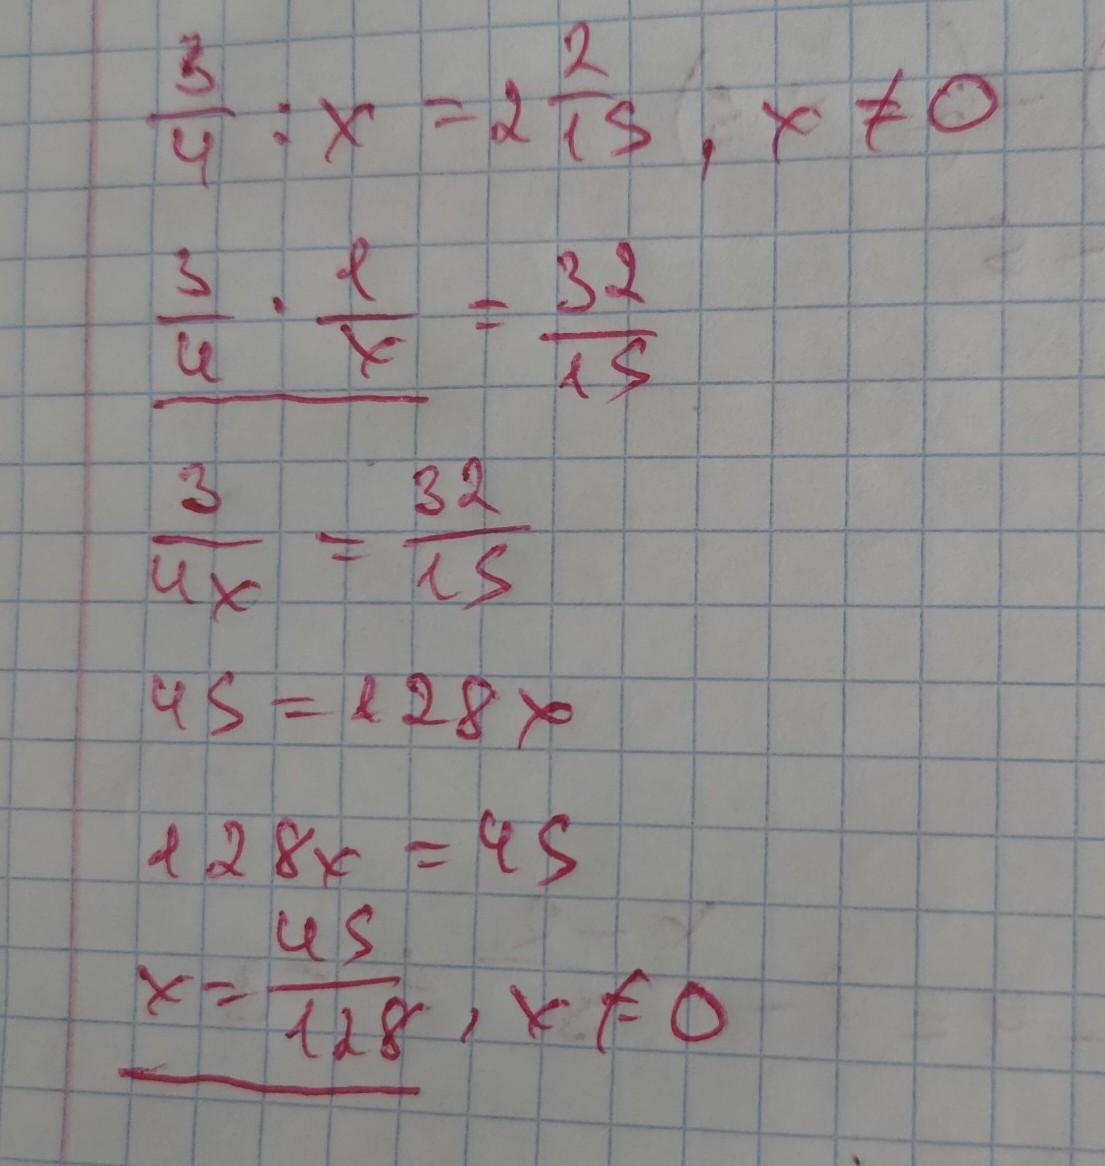 3/4 : x = 2 2/15 , x ≠ 0
3/4 · 1/x = 32/15
3/4x = 32/15
45 = 128x
128x = 45
x = 45/128 , x ≠ 0